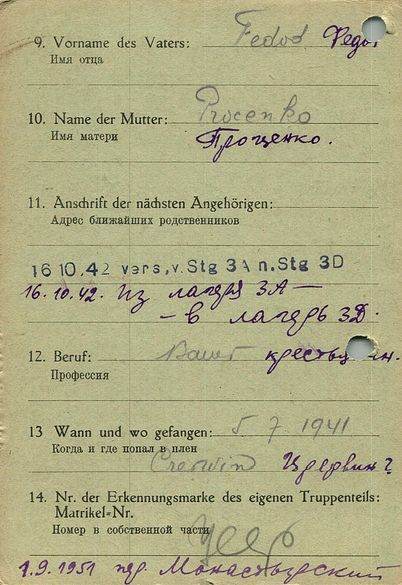 9. Vorname des Vaters: Fedod Федот
Имя отца
10. Name der Mutter: Procenko
Имя матери Проценко.
11. Anschrift der nächsten Angehörigen:
Адрес ближайших родственников
16 10.42 vers, v. Stg 3A n. Stg 3D
16.10.42. из лагеря 3А —
— в лагерь 3Д.
12. Beruf: Bauer крестьянин.
Профессия
13 Wann und wo gefangen: 5. 7. 1941
Когда и где попал в плен
Cerwin Цдервин?
14. Nr. der Erkennungsmarke des eigenen Truppenteils:
Matrikel=Nr.
Номер в собственной части
1.9.1951 пер. Монастырский